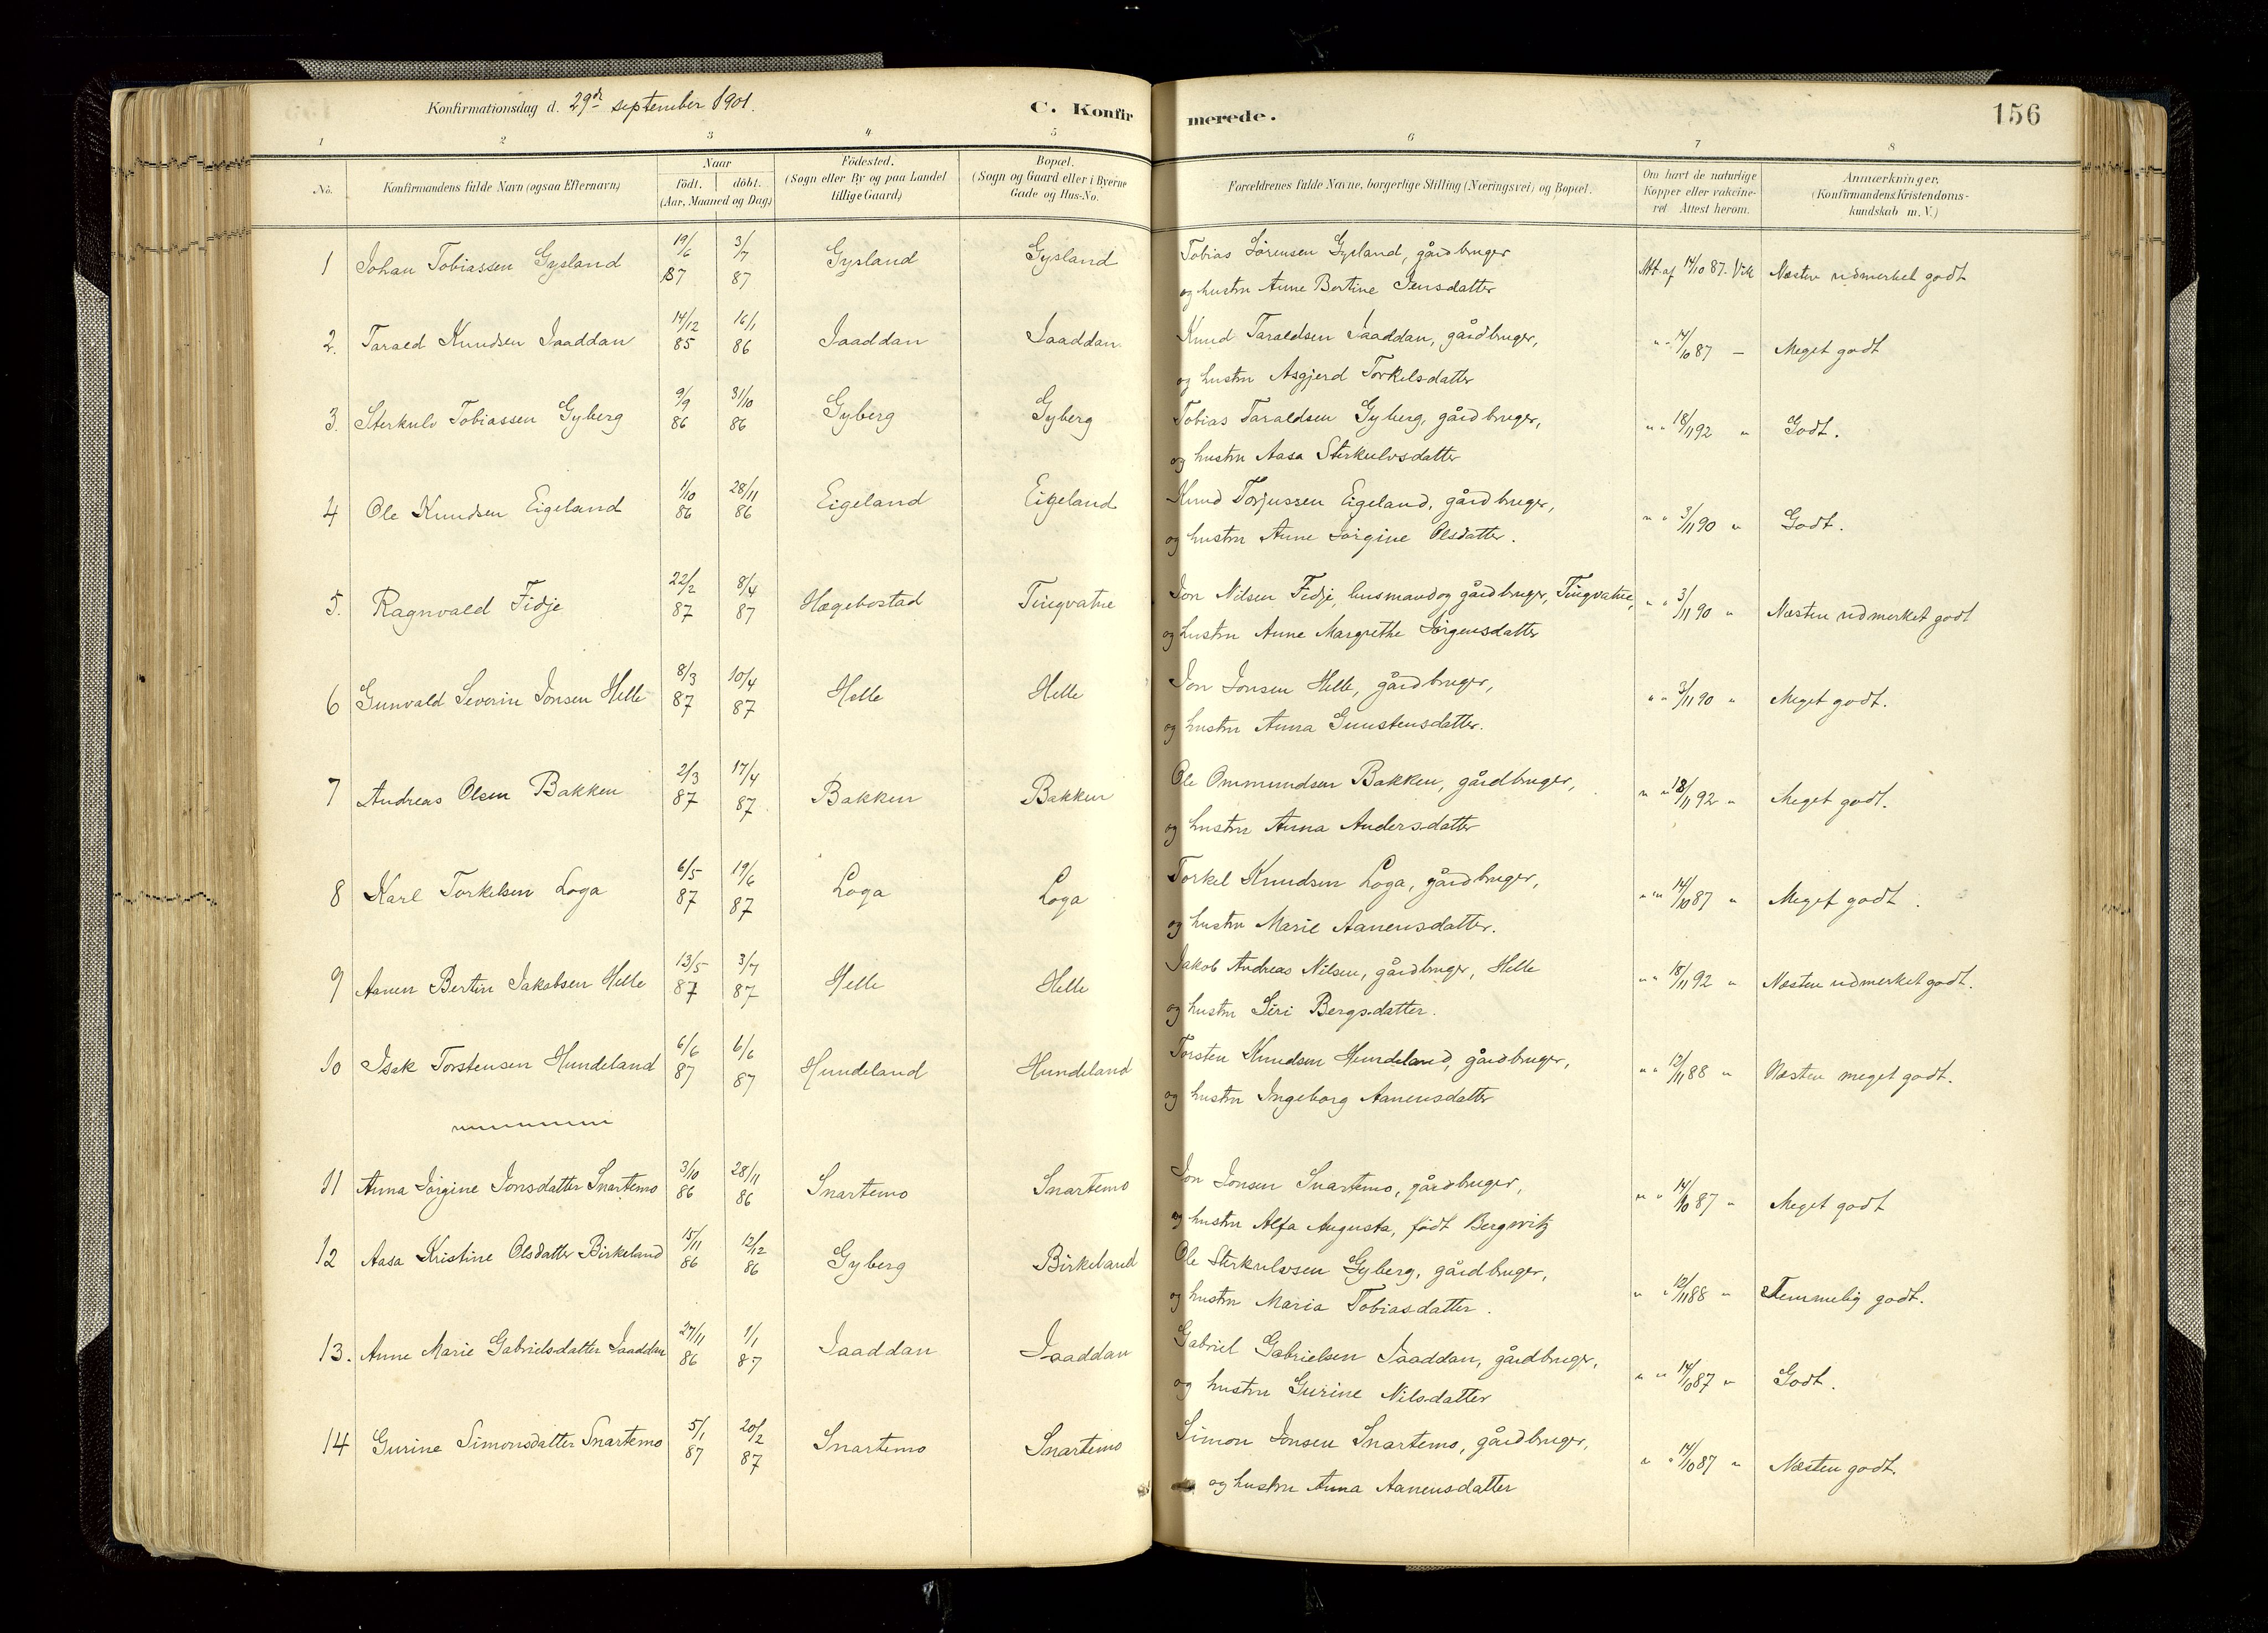 Konfirmationsdag d. 29de september 1901. C. Konfirmerede. 156
1 2 3 4 5 6 7 8
No. Konfirmandens fulde Navn (ogsaa Efternavn) Naar födt. döbt. (Aar, Maaned og Dag) Födested. (Sogn eller By og paa Landet tillige Gaard) Bopæl. (Sogn og Gaard eller i Byerne Gade og Hus-No. Forældrenes fulde Navne, borgerlige Stilling (Næringsvei) og Bopæl. Om havt de naturlige Kopper eller vakcineret Attest herom. Anmærkninger. (Konfirmandens Kristendomskundskab m. V.)
1 Johan Tobiassen Gysland 19/6 87 3/7 87 Gysland Gysland Tobias Sörensen Gysland, gårdbruger Att. af 14/10 87. Vik Næsten udmerket godt
og hustru Anne Bertine Jensdatter
2. Tarald Knudsen Jaaddan 14/12 85 16/1 86 Jaaddan Jaaddan Knud Taraldsen Jaaddan, gårdbruger, " " 14/10 87 — Meget godt
og hustru Asgjerd Torkelsdatter
3. Sterkulv Tobiassen Gyberg 9/9 86 31/10 86 Gyberg Gyberg Tobias Taraldsen Gyberg, gårdbruger, " " 18/11 92 " Godt.
og hustru Aasa Sterkulvsdatter
4 Ole Knudsen Eigeland 1/10 86 28/11 86 Eigeland Eigeland Knud Torjussen Eigeland, gårdbruger, " " 3/11 90 " Godt.
og hustru Anne Jörgine Olsdatter.
5. Ragnvald Fidje 22/2 87 8/4 87 Hægebostad Tingvatne Jon Nilsen Fidje, husmand og gårdbruger, Tingvatne, " " 3/11 90 " Næsten udmerket godt
og hustru Anne Margrethe Jörgensdatter
6 Gunvald Severin Jonsen Helle 8/3 87 10/4 87 Helle Helle Jon Jonsen Helle, gårdbruger, " " 3/11 90 " Meget godt.
og hustru Anna Gunstensdatter.
7 Andreas Olsen Bakken 2/3 87 17/4 87 Bakken Bakken Ole Ommundsen Bakken, gårdbruger, " " 18/11 92 " Meget godt.
og hustru Anna Andersdatter
8 Karl Torkelsen Loga 6/5 87 19/6 87 Loga Loga Torkel Knudsen Loga, gårdbruger, " " 14/10 87 " Meget godt.
og hustru Marie Aanensdatter.
9 Aanen Bertin Jakobsen Helle 13/5 87 3/7 87 Helle Helle Jakob Andreas Nilsen, gårdbruger, Helle " " 18/11 92 " Næsten udmerket godt.
og hustru Siri Bergsdatter.
10 Isak Torstensen Hundeland 6/6 87 6/6 87 Hundeland Hundeland Torsten Knudsen Hundeland, gårdbruger, " " 12/11 88 " Næsten meget godt.
og hustru Ingeborg Aanensdatter
11 Anna Jörgine Jonsdatter Snartemo 3/10 86 28/11 86 Snartemo Snartemo Jon Jonsen Snartemo, gårdbruger, " " 14/10 87 " Meget godt
og hustru Alfa Augusta, födt Bergwitz
12 Aasa Kristine Olsdatter Birkeland 15/11 86 12/12 86 Gyberg Birkeland Ole Sterkulvsen Gyberg, gårdbruger, " " 12/11 88 " Temmelig godt.
og hustru Maria Tobiasdatter.
13. Anne Marie Gabrielsdatter Jaaddan 27/11 86 1/1 87 Jaaddan Jaaddan Gabriel Gabrielsen Jaaddan, gårdbruger, " " 14/10 87 " Godt.
og hustru Gurine Nilsdatter
14 Gurine Simonsdatter Snartemo 5/1 87 20/2 87 Snartemo Snartemo Simon Jonsen Snartemo, gårdbruger, " " 14/10 87 " Næsten godt.
og hustru Anna Aanensdatter